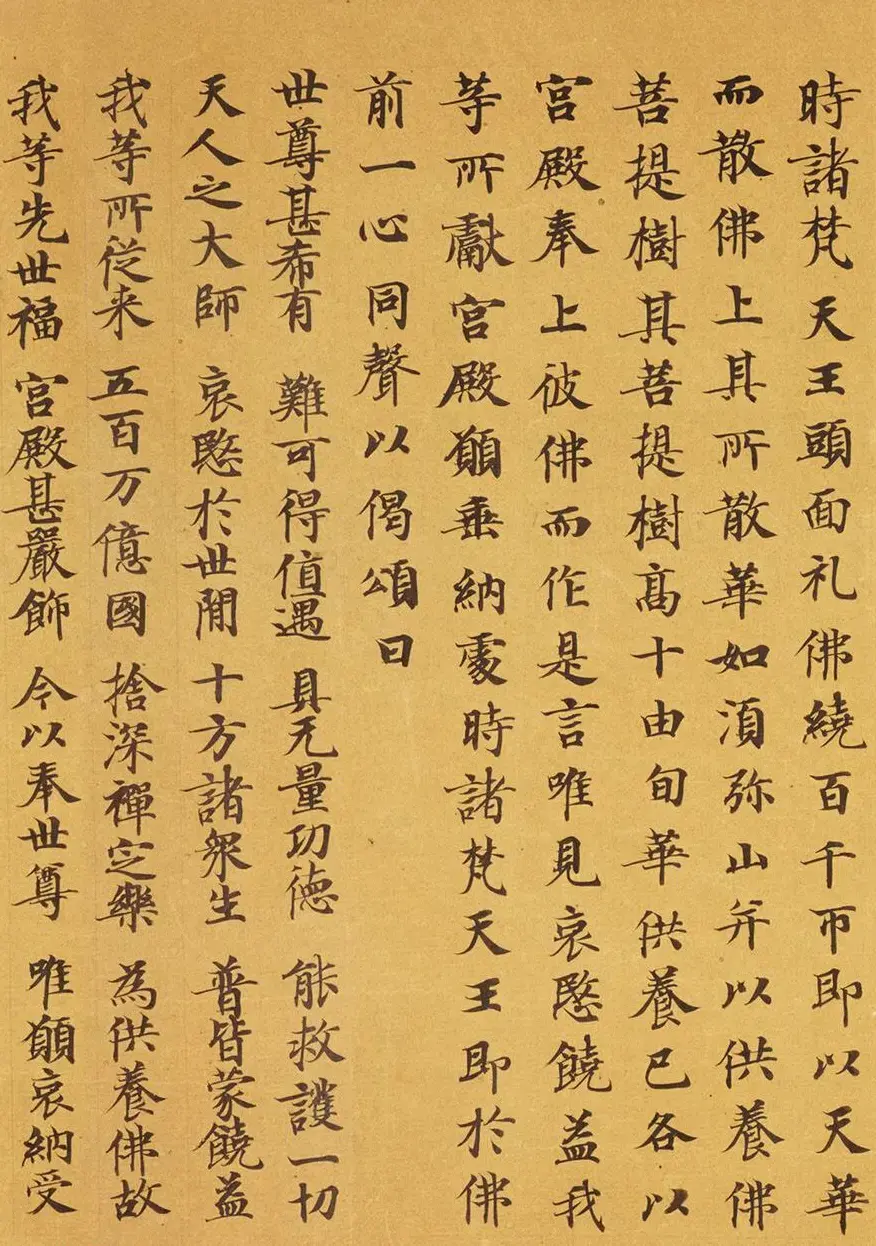 時諸梵天王頭面礼佛繞百千帀即以天華
而散佛上其所散華如湏弥山并以供養佛
菩提樹其菩提樹高十由旬華供養已各以
宮殿奉上彼佛而作是言唯見哀愍饒益我
等所獻宮殿願垂納處時諸梵天王即於佛
前一心同聲以偈頌曰
世尊甚希有 難可得值遇 具无量功德 能救護一切
天人之大師 哀愍於世間 十方諸衆生 普皆蒙饒益
我等所從来 五百万億國 捨深禪定樂 為供養佛故
我等先世福 宮殿甚嚴飾 今以奉世尊 唯願哀納受